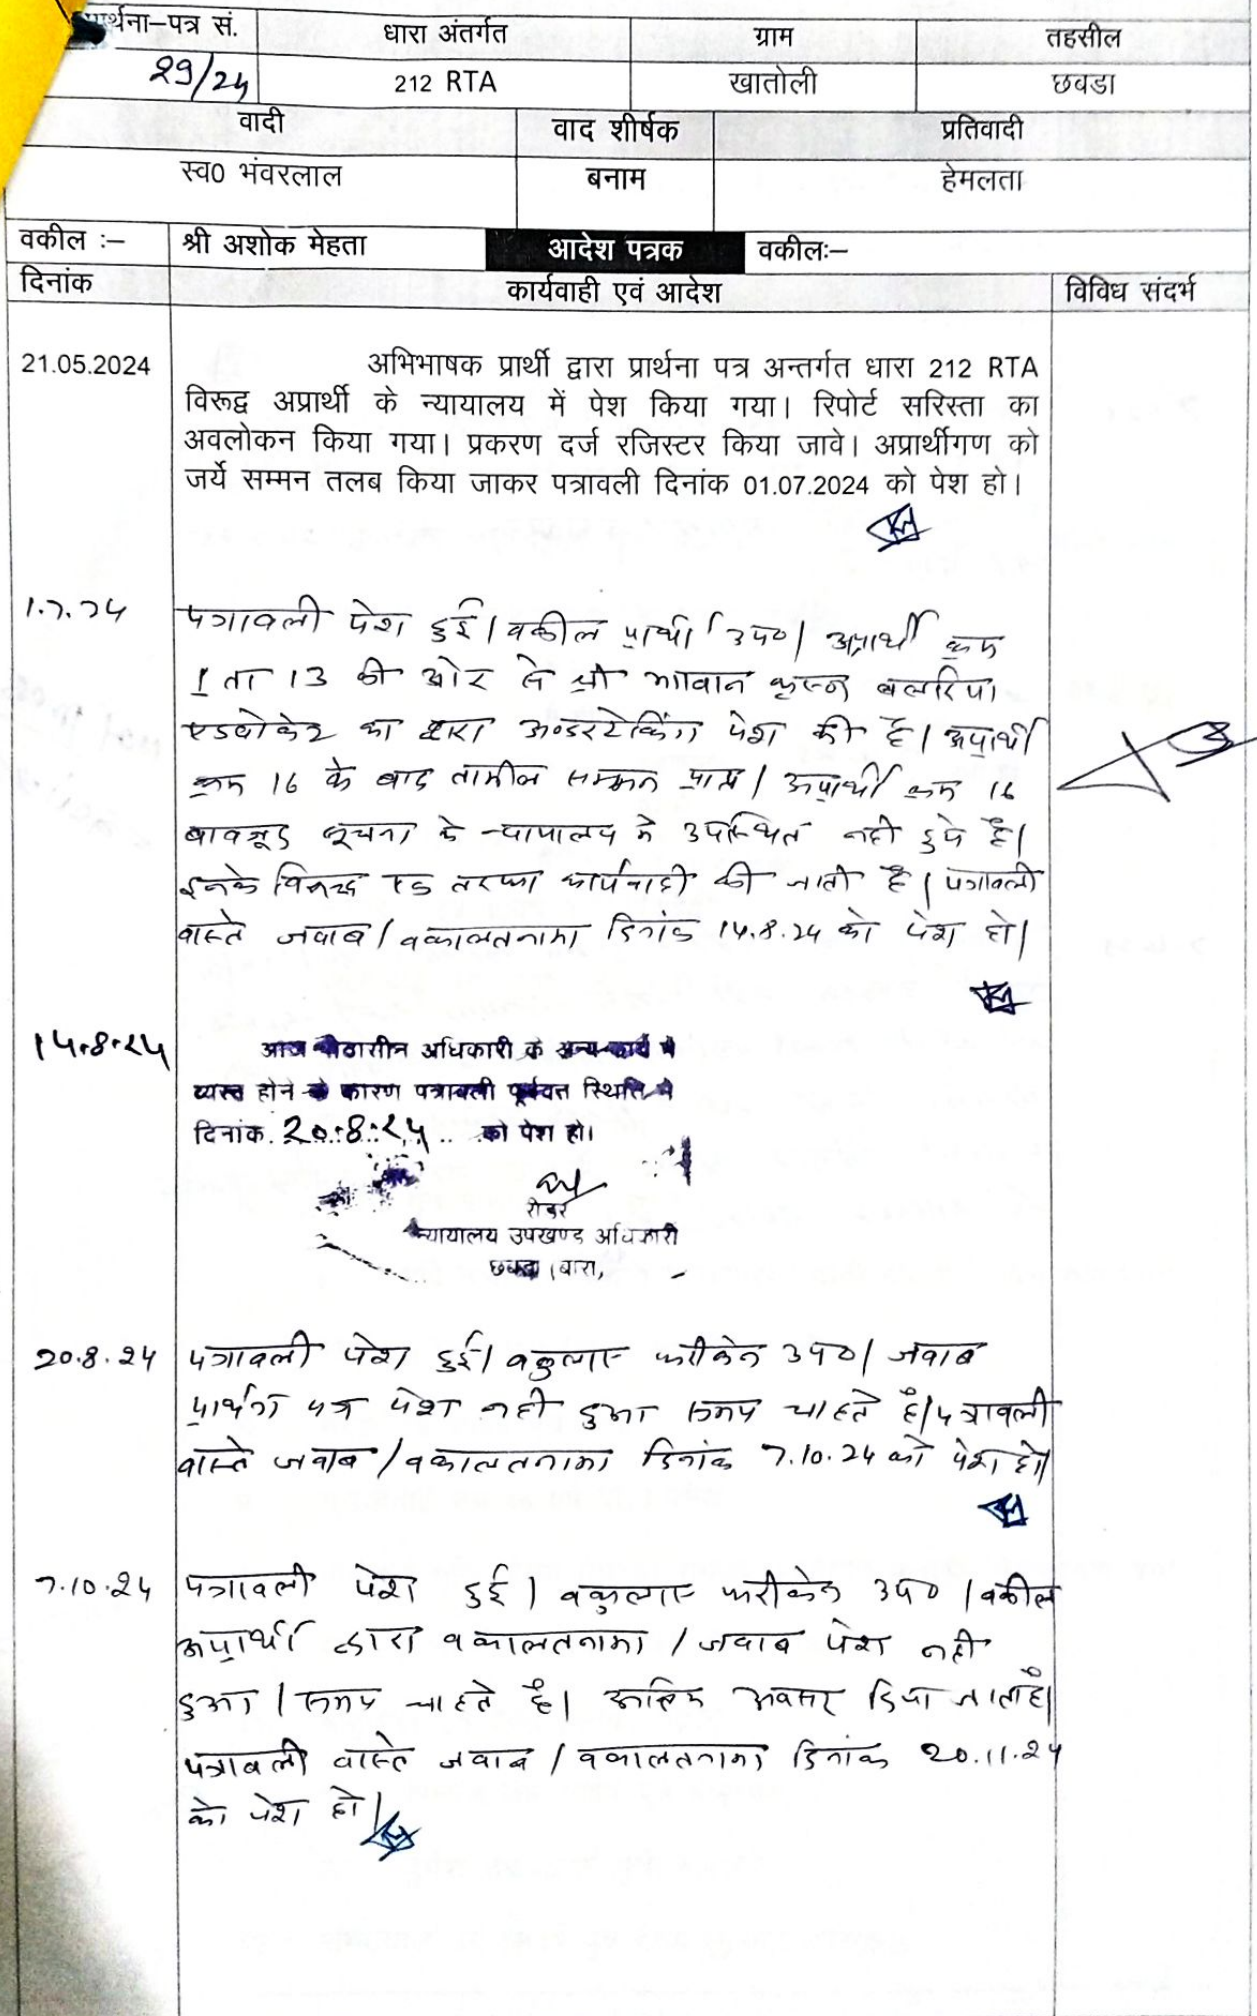 र्थना–पत्र सं. धारा अंतर्गत ग्राम तहसील
29/24 212 RTA खातोली छबडा
वादी वाद शीर्षक प्रतिवादी
स्व0 भंवरलाल बनाम हेमलता
वकील :– श्री अशोक मेहता आदेश पत्रक वकीलः–
दिनांक कार्यवाही एवं आदेश विविध संदर्भ
21.05.2024 अभिभाषक प्रार्थी द्वारा प्रार्थना पत्र अन्तर्गत धारा 212 RTA
विरूद्व अप्रार्थी के न्यायालय में पेश किया गया। रिपोर्ट सरिस्ता का
अवलोकन किया गया। प्रकरण दर्ज रजिस्टर किया जावे। अप्रार्थीगण को
जर्ये सम्मन तलब किया जाकर पत्रावली दिनांक 01.07.2024 को पेश हो।
1.7.24 पत्रावली पेश हुई। वकील प्रार्थी उप०। अप्रार्थी क्रम
1 ता 13 की ओर से श्री कृष्ण
एडवोकेट का द्वारा अण्डरटेकिंग पेश की है। अप्रार्थी
क्रम 16 के बाद तामील सम्मन प्राप्त। अप्रार्थी क्रम 16
बावजूद सूचना के न्यायालय मे उपस्थित नही हुये है।
इनके विरूद्ध एक तरफा कार्यवाही की जाती है। पत्रावली
वास्ते जवाब/वकालतनामा दिनांक 14.8.24 को पेश हो।
14.8.24 आज पीठासीन अधिकारी के अन्य कार्य मे
व्यस्त होने के कारण पत्रावली पूर्ववत स्थिति मे
दिनांक 20.8.24 को पेश हो।
रीडर
न्यायालय उपखण्ड अधिकारी
छबडा (बारां)
20.8.24 पत्रावली पेश हुई। वकुलाए फरीकेन उप०। जवाब
प्रार्थना पत्र पेश नही हुआ समय चाहते है। पत्रावली
वास्ते जवाब/वकालतनामा दिनांक 7.10.24 को पेश हो।
7.10.24 पत्रावली पेश हुई। वकुलाए फरीकेन उप०। वकील
अप्रार्थी द्वारा वकालतनामा/जवाब पेश नही
हुआ। समय चाहते है। अवसर दिया जाता है।
पत्रावली वास्ते जवाब/वकालतनामा दिनांक 20.11.24
को पेश हो।